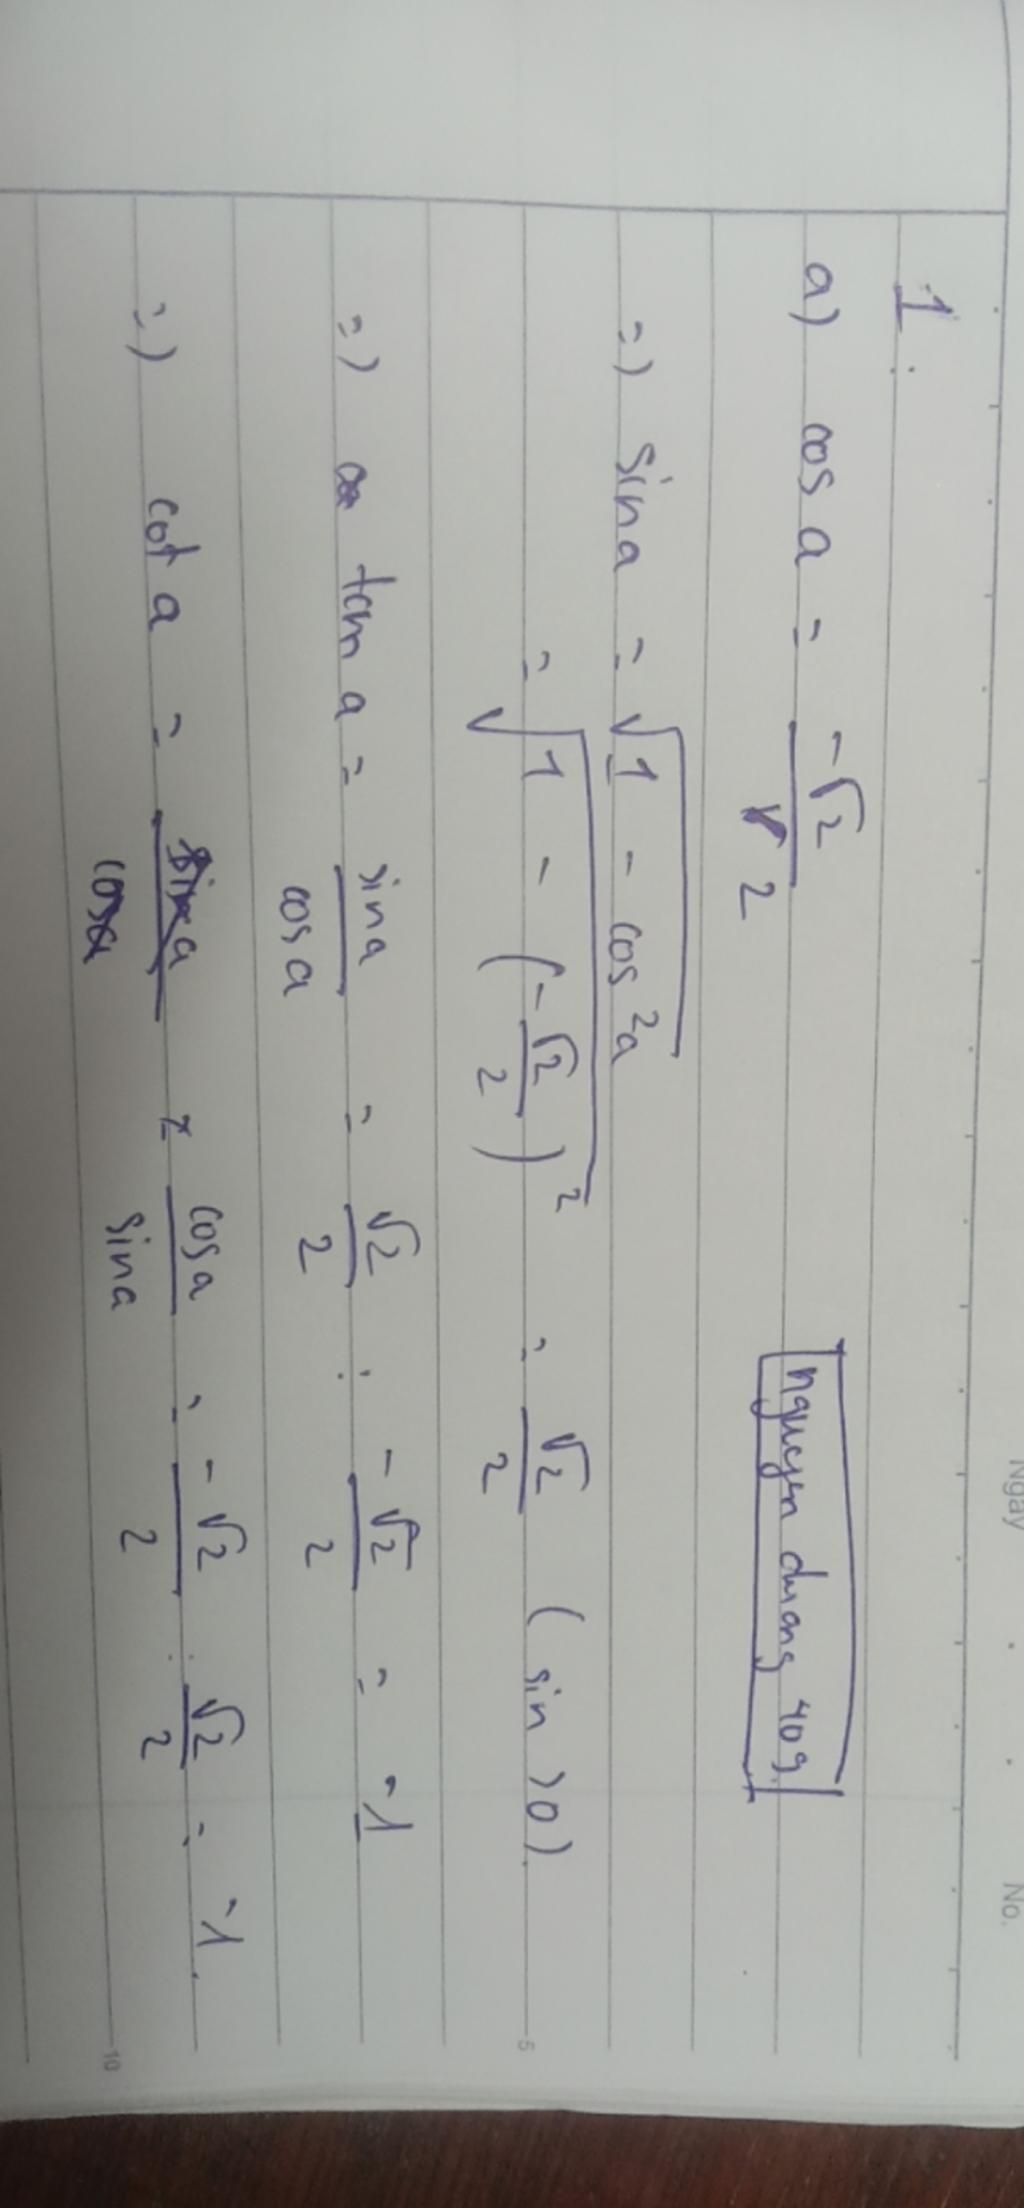 Ngày No.
1.
a) cos a = -√2/√2
nguyen duong 409
=) sin a = √(1 - cos²a)
= √(1 - (-√2/2)²) = √2/2 (sin >0)
5
=) tan a = sin a/cos a = √2/2 : -√2/2 = -1
=) cot a = cos a/sin a = -√2/2 : √2/2 = -1.
10